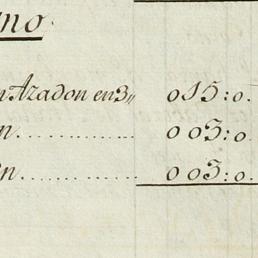 no.
n Azadon en 3,, 015:0.
n.............. 003:0.
n.............. 003:0.